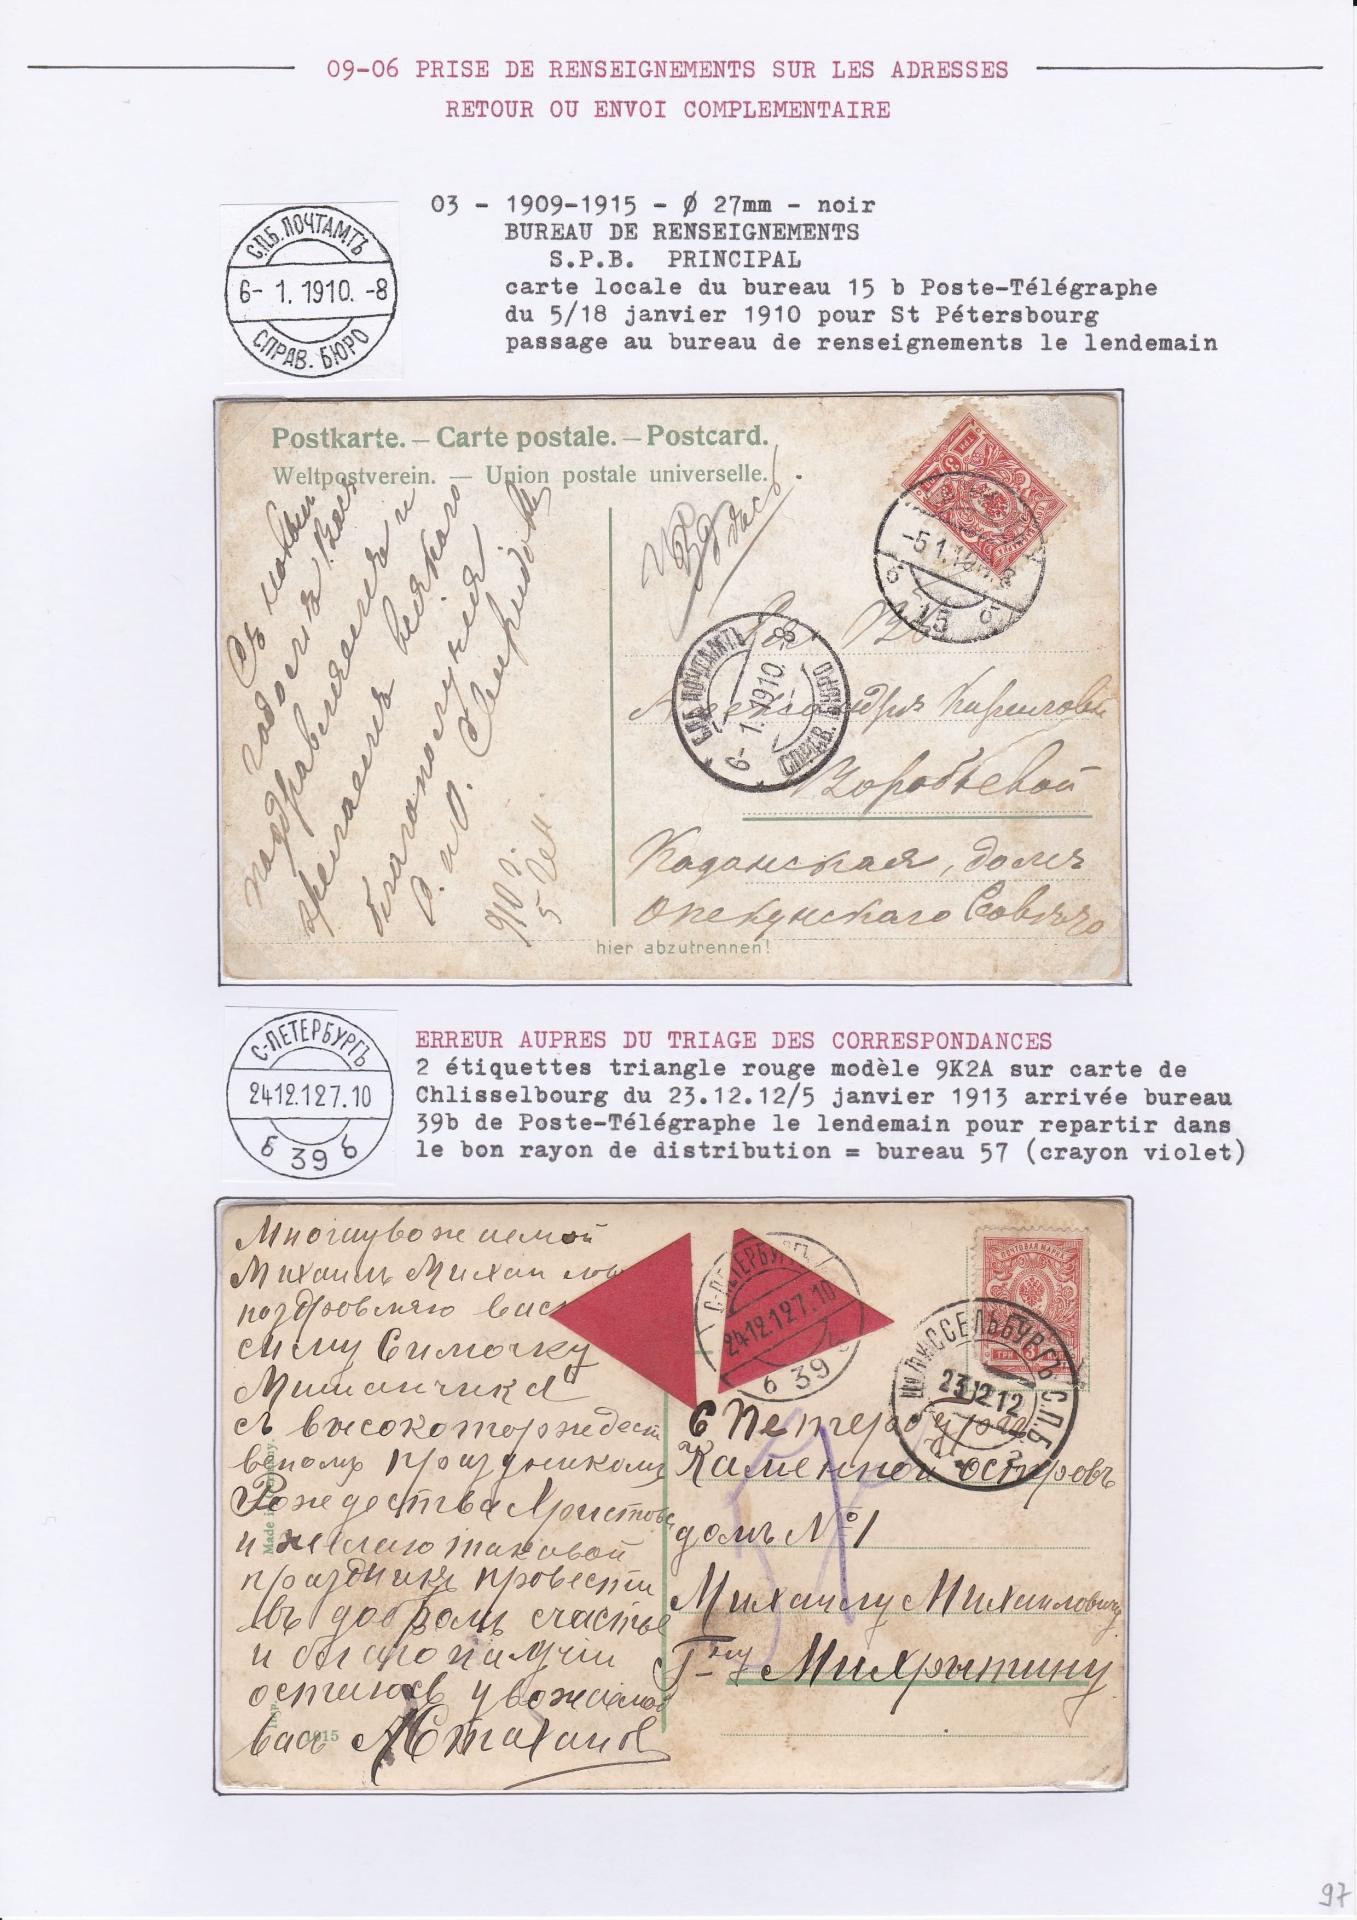 09-06 PRISE DE RENSEIGNEMENTS SUR LES ADRESSES
RETOUR OU ENVOI COMPLEMENTAIRE
С.П.Б. ПОЧТАМТЪ
6- 1. 1910. -8
СПРАВ. БЮРО
03 - 1909-1915 - Ø 27mm - noir
BUREAU DE RENSEIGNEMENTS
S.P.B. PRINCIPAL
carte locale du bureau 15 b Poste-Télégraphe
du 5/18 janvier 1910 pour St Pétersbourg
passage au bureau de renseignements le lendemain
Postkarte. – Carte postale. – Postcard.
Weltpostverein. — Union postale universelle.
Съ новымъ
поздравляемъ и
желаемъ всякаго
благополучія
1910 г.
5
-5.1.10
б 15 б
С.П.Б. ПОЧТАМТЪ
6- 1. 1910. 8
СПРАВ. БЮРО
Александрѣ Кириловнѣ
Воробьевой
Казанская, домъ
Опекунскаго Совѣта
hier abzutrennen!
С-ПЕТЕРБУРГЪ
24.12.12 7.10
б 39 б
ERREUR AUPRES DU TRIAGE DES CORRESPONDANCES
2 étiquettes triangle rouge modèle 9K2A sur carte de
Chlisselbourg du 23.12.12/5 janvier 1913 arrivée bureau
39b de Poste-Télégraphe le lendemain pour repartir dans
le bon rayon de distribution = bureau 57 (crayon violet)
Многауважаемой
Михаилъ
поздровляю васъ
симу Симочку
съ высокоторжест
венымъ праздникомъ
Рождества Христова
и желаю таковой
праздникъ провести
въ добромъ счастье
и благополучіи
остаюсь уважаемой
васъ
Made in Germany.
Imp.
1915
С-ПЕТЕРБУРГЪ
24.12.12 7.10
б 39 б
ПОЧТОВАЯ МАРКА
ТРИ 3
ШЛИССЕЛЬБУРГЪ С.П.Б.
23 12 12
С Петербургъ
Каменной островъ
домъ № 1
57
Михаилу Михаиловичу
Г-ну Михрютину
97